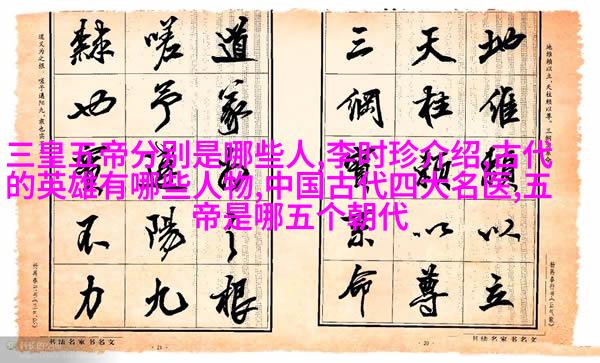 三皇五帝分别是哪些人,李时珍介绍,古代
的英雄有哪些人物,中国古代四大名医,五
帝是哪五个朝代
地維賴以立
天柱賴以尊
三綱實系命
道義為之根
嗟予遘陽九
隸也實不力
· 20 ·
· 21 ·